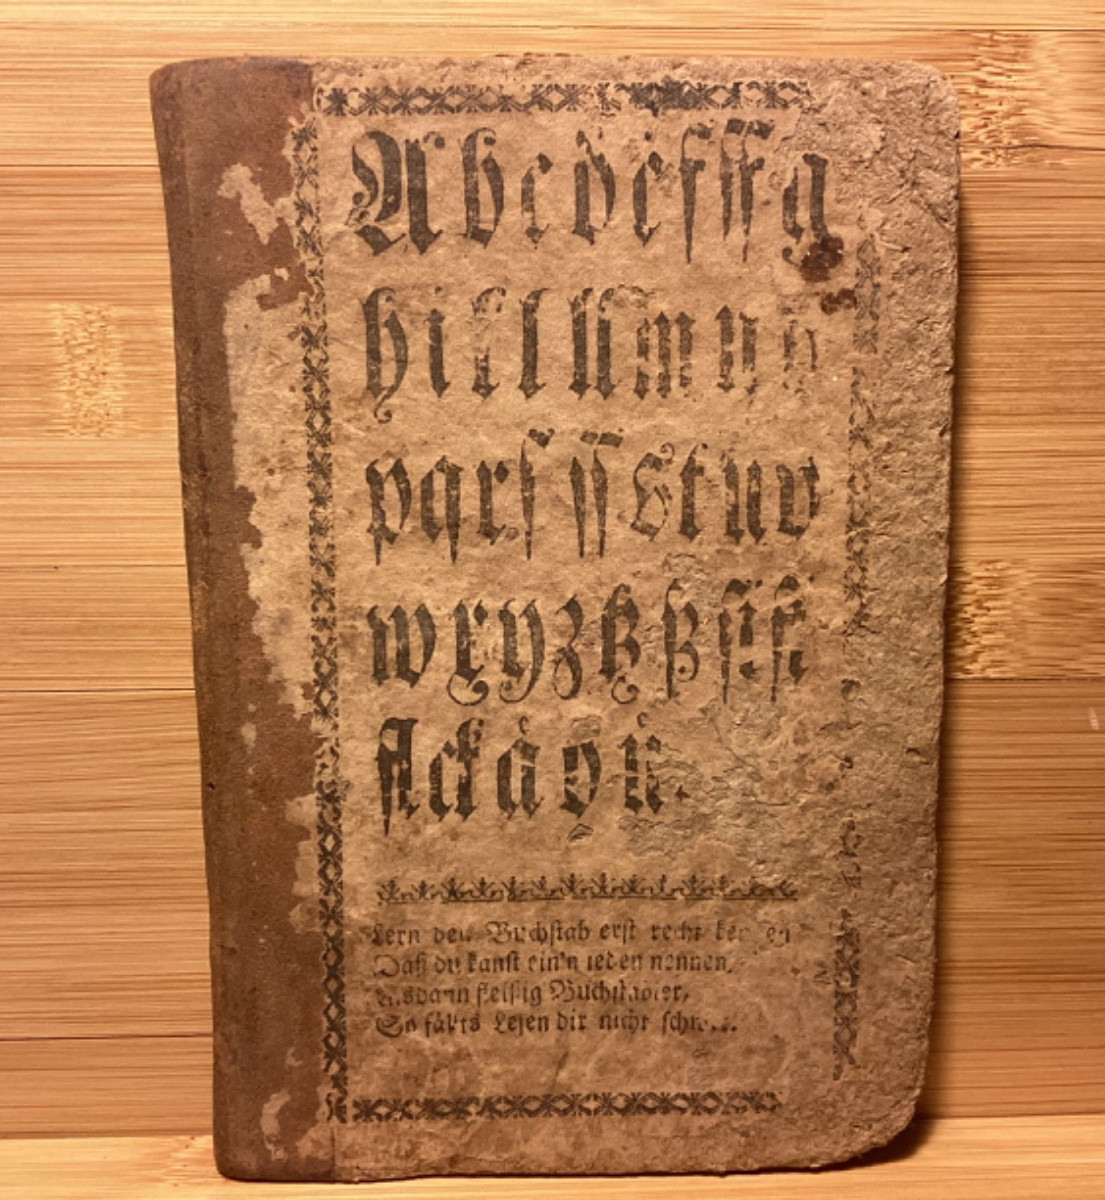 A b c d e f ff g
h i k l ll m n o
p q r ſ ſſ s t u v
w x y z tz ß ſi ſſi
ſt ck aͤ oͤ uͤ.
Lern den Buchſtab erſt recht kennen
Daß du kanſt ein'n jeden nennen,
Alsdann fleiſſig Buchſtabier,
So fällts Leſen dir nicht